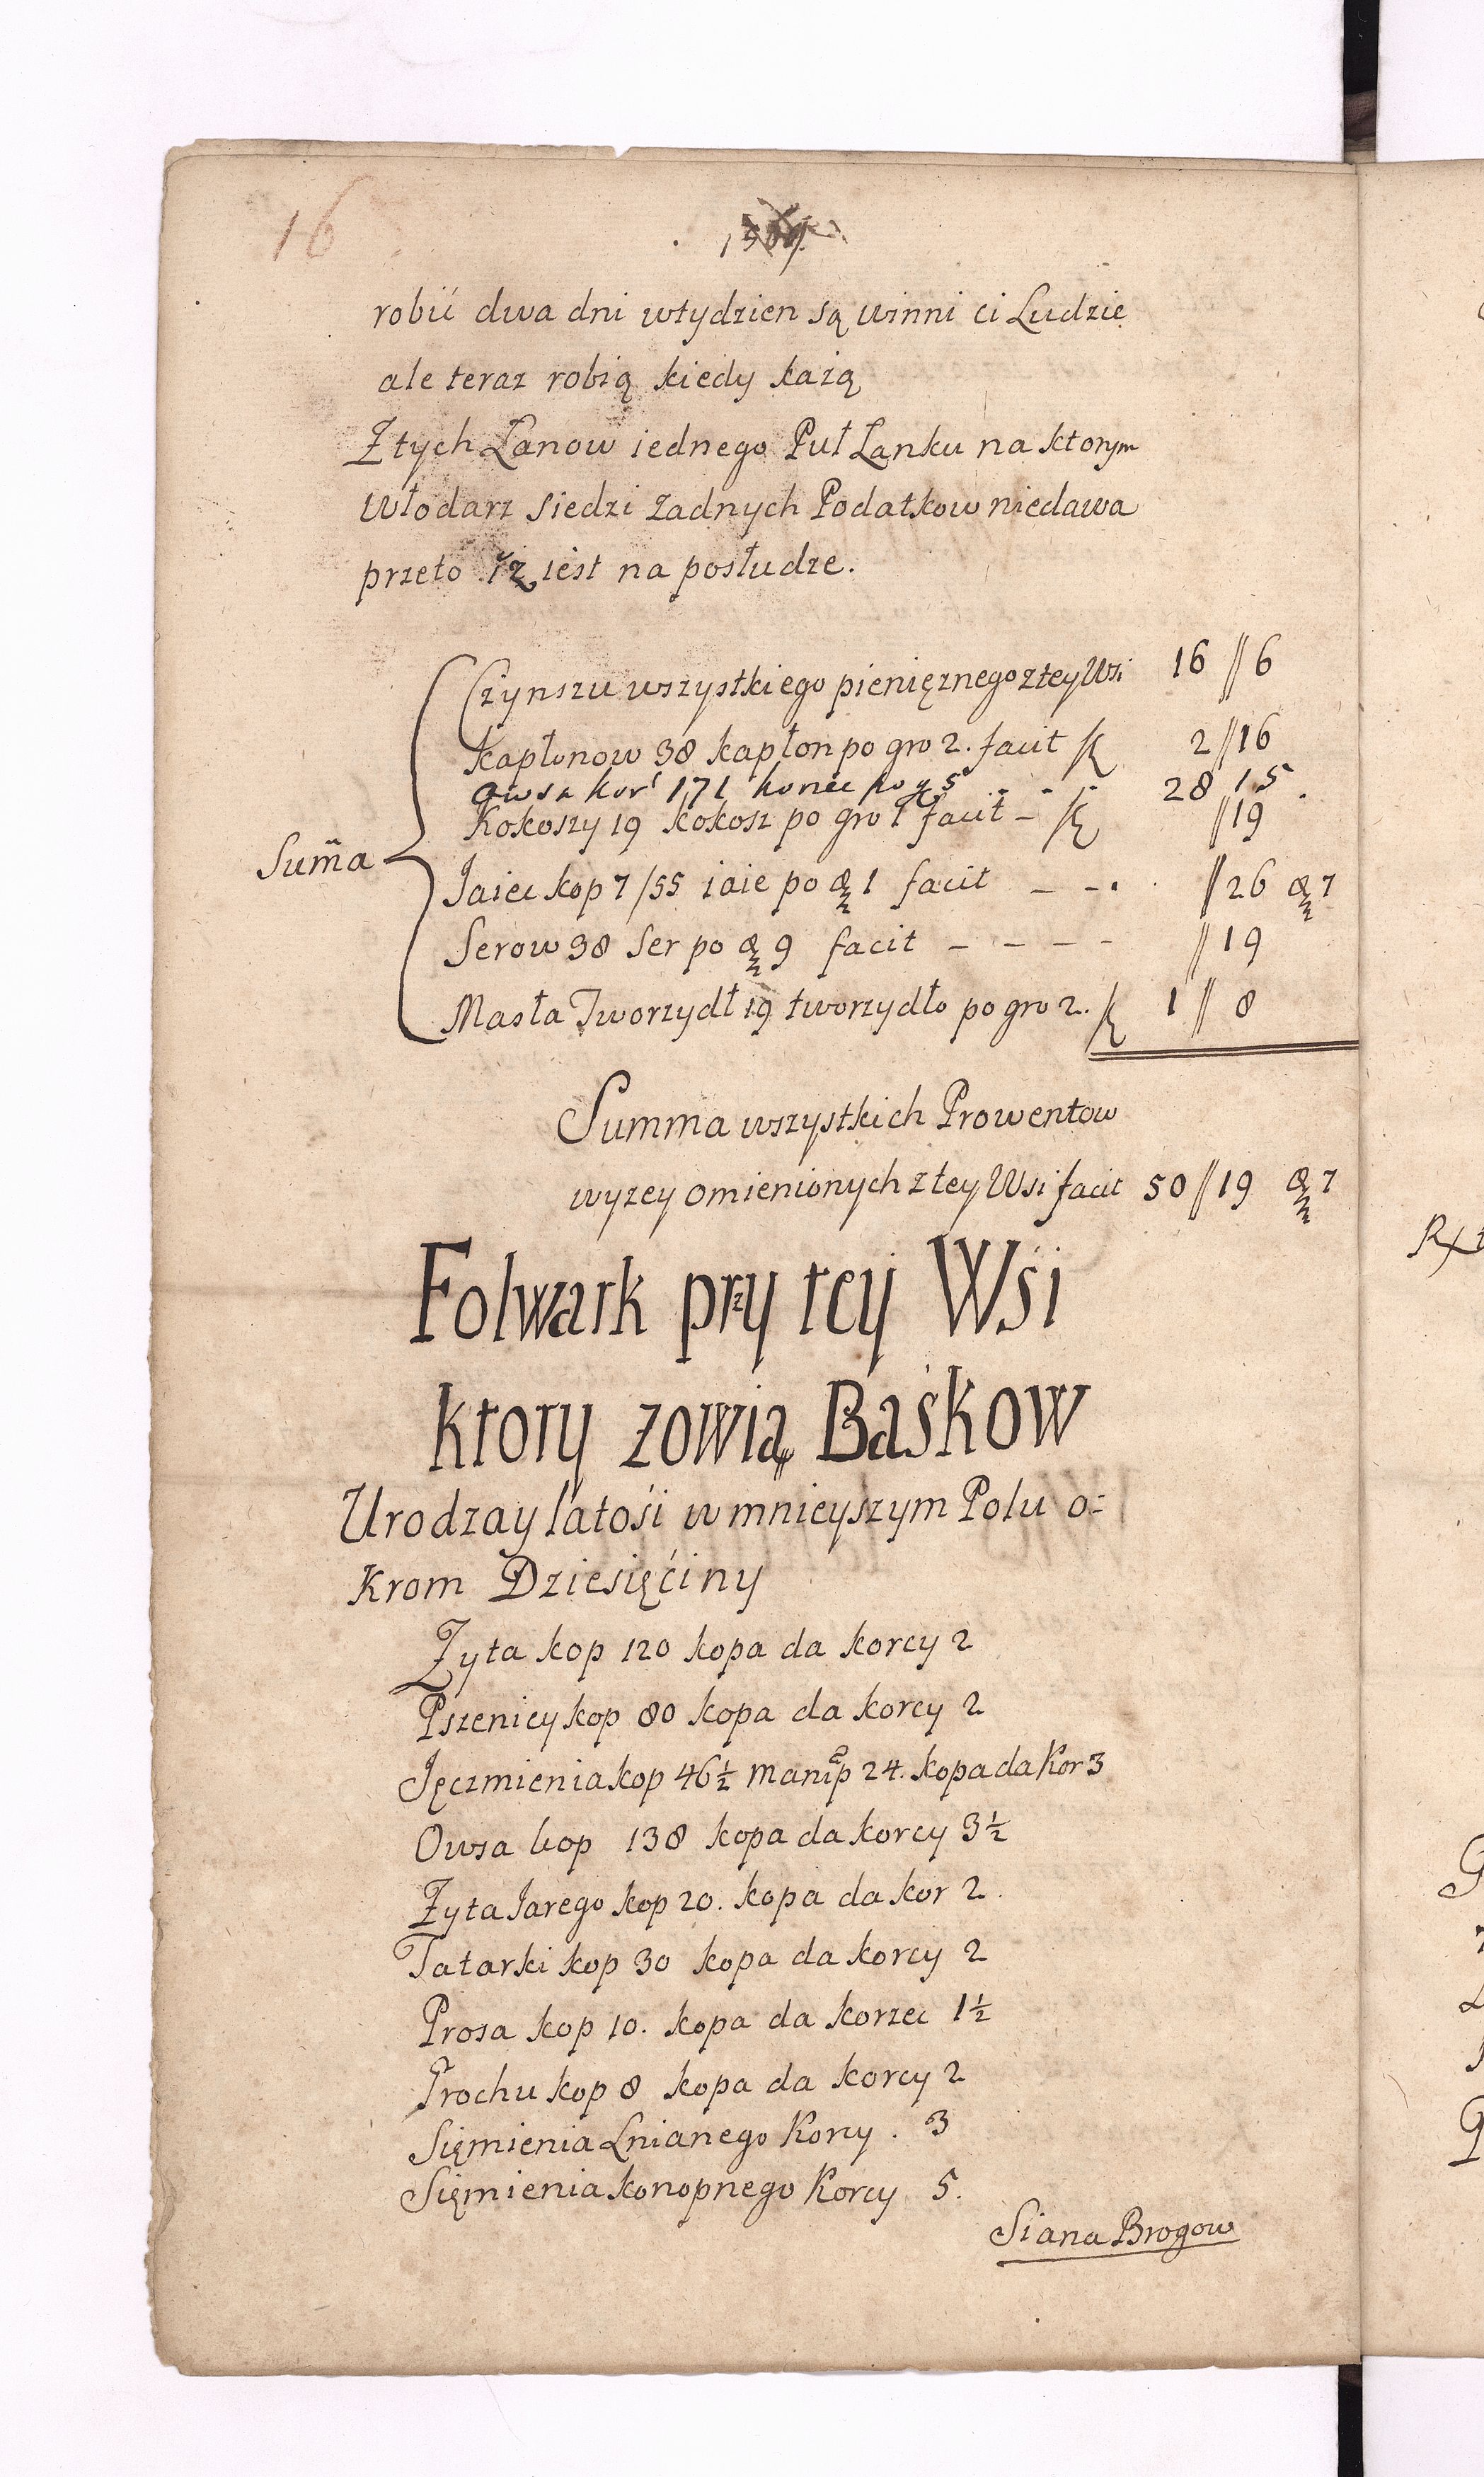 16
robić dwa dni wtydzien są winni ci Ludzie
ale teraz robią kiedy każą
Z tych Łanow iednego Puł Łanku na ktorym
Włodarz siedzi żadnych Podatkow niedawa
przeto iż iest na posłudze.
Czynszu wszystkiego pienięznego z tey Wsi 16 // 6
Kapłonow 38 kapłon po gro 2. facit 2 // 16
owsa kor 171 korzec po g 5 - - - 28 15.
Kokoszy 19 kokosz po gro 1 facit - // 19
Suma
Jaiec kop 7/55 iaie po 1 facit - - . // 26 7
Serow 38 Ser po 9 facit - - - - // 19
Masła Tworzydł 19 tworzydło po gro 2. 1 // 8
Summa wszystkich Prowentow
wyzey omienionych z tey Wsi facit 50 // 19 7
Folwark przy tey Wsi
ktory zowią Baśkow
Urodzay latośi w mnieyszym Polu o=
krom Dziesięćiny
Zyta kop 120 kopa da korcy 2
Pszenicy kop 80 kopa da korcy 2
Jęczmienia kop 46½ manip 24. kopa da Kor 3
Owsa kop 138 kopa da korcy 3½
Zyta Jarego kop 20. kopa da kor 2.
Tatarki kop 30 kopa da korcy 2
Prosa kop 10. kopa da korzec 1½
Grochu kop 8 kopa da korcy 2
Sięmienia Lnianego Korcy . 3
Sięmienia konopnego Korcy 5.
Siana Brogow